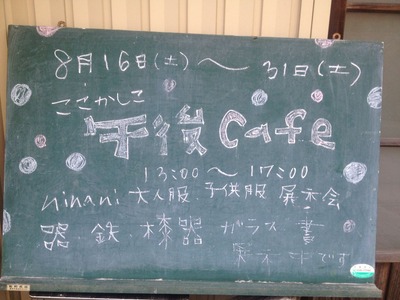 8月16日(土)〜31日(土)
ここかしこ
午後Cafe
13:00〜17:00
minani 大人服.子供服 展示会
器 鉄 漆器 ガラス 書
です